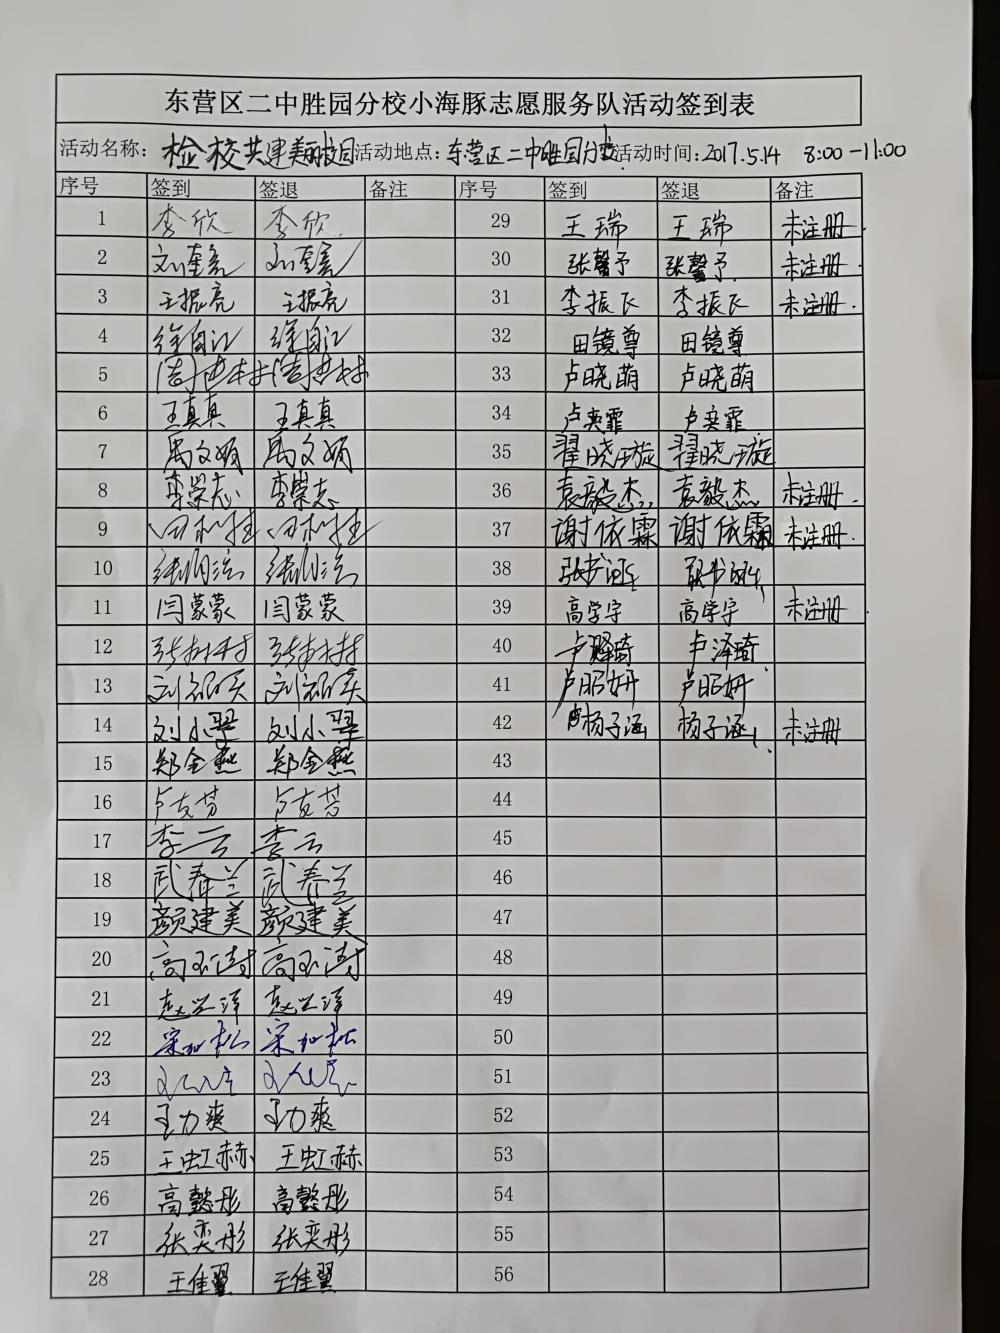 东营区二中胜园分校小海豚志愿服务队活动签到表
活动名称：检校共建美丽校园 活动地点：东营区二中胜园分校 活动时间：2017.5.14 8:00-11:00
序号 签到 签退 备注 序号 签到 签退 备注
1 李欣 李欣 29 王瑞 王瑞 未注册
2 30 张馨予 张馨予 未注册
3 王振亮 王振亮 31 李振飞 李振飞 未注册
4 徐自江 徐自江 32 田镜尊 田镜尊
5 33 卢晓萌 卢晓萌
6 王真真 王真真 34 卢奕霏 卢奕霏
7 禹文娟 禹文娟 35 翟晓璇 翟晓璇
8 李荣志 李荣志 36 袁毅杰 袁毅杰 未注册
9 37 谢依霖 谢依霖 未注册
10 38 张书 张书
11 闫蒙蒙 闫蒙蒙 39 高学宇 高学宇 未注册
12 40 卢泽琦 卢泽琦
13 41 卢昭妍 卢昭妍
14 刘小翠 刘小翠 42 杨子涵 杨子涵 未注册
15 郑金燕 郑金燕 43
16 卢友芳 卢友芳 44
17 李云 李云 45
18 武春兰 武春兰 46
19 颜建美 颜建美 47
20 高玉涛 高玉涛 48
21 赵兴泽 赵兴泽 49
22 宋加松 宋加松 50
23 51
24 王力爽 王力爽 52
25 王虹赫 王虹赫 53
26 高懿彤 高懿彤 54
27 张奕彤 张奕彤 55
28 王佳翼 王佳翼 56